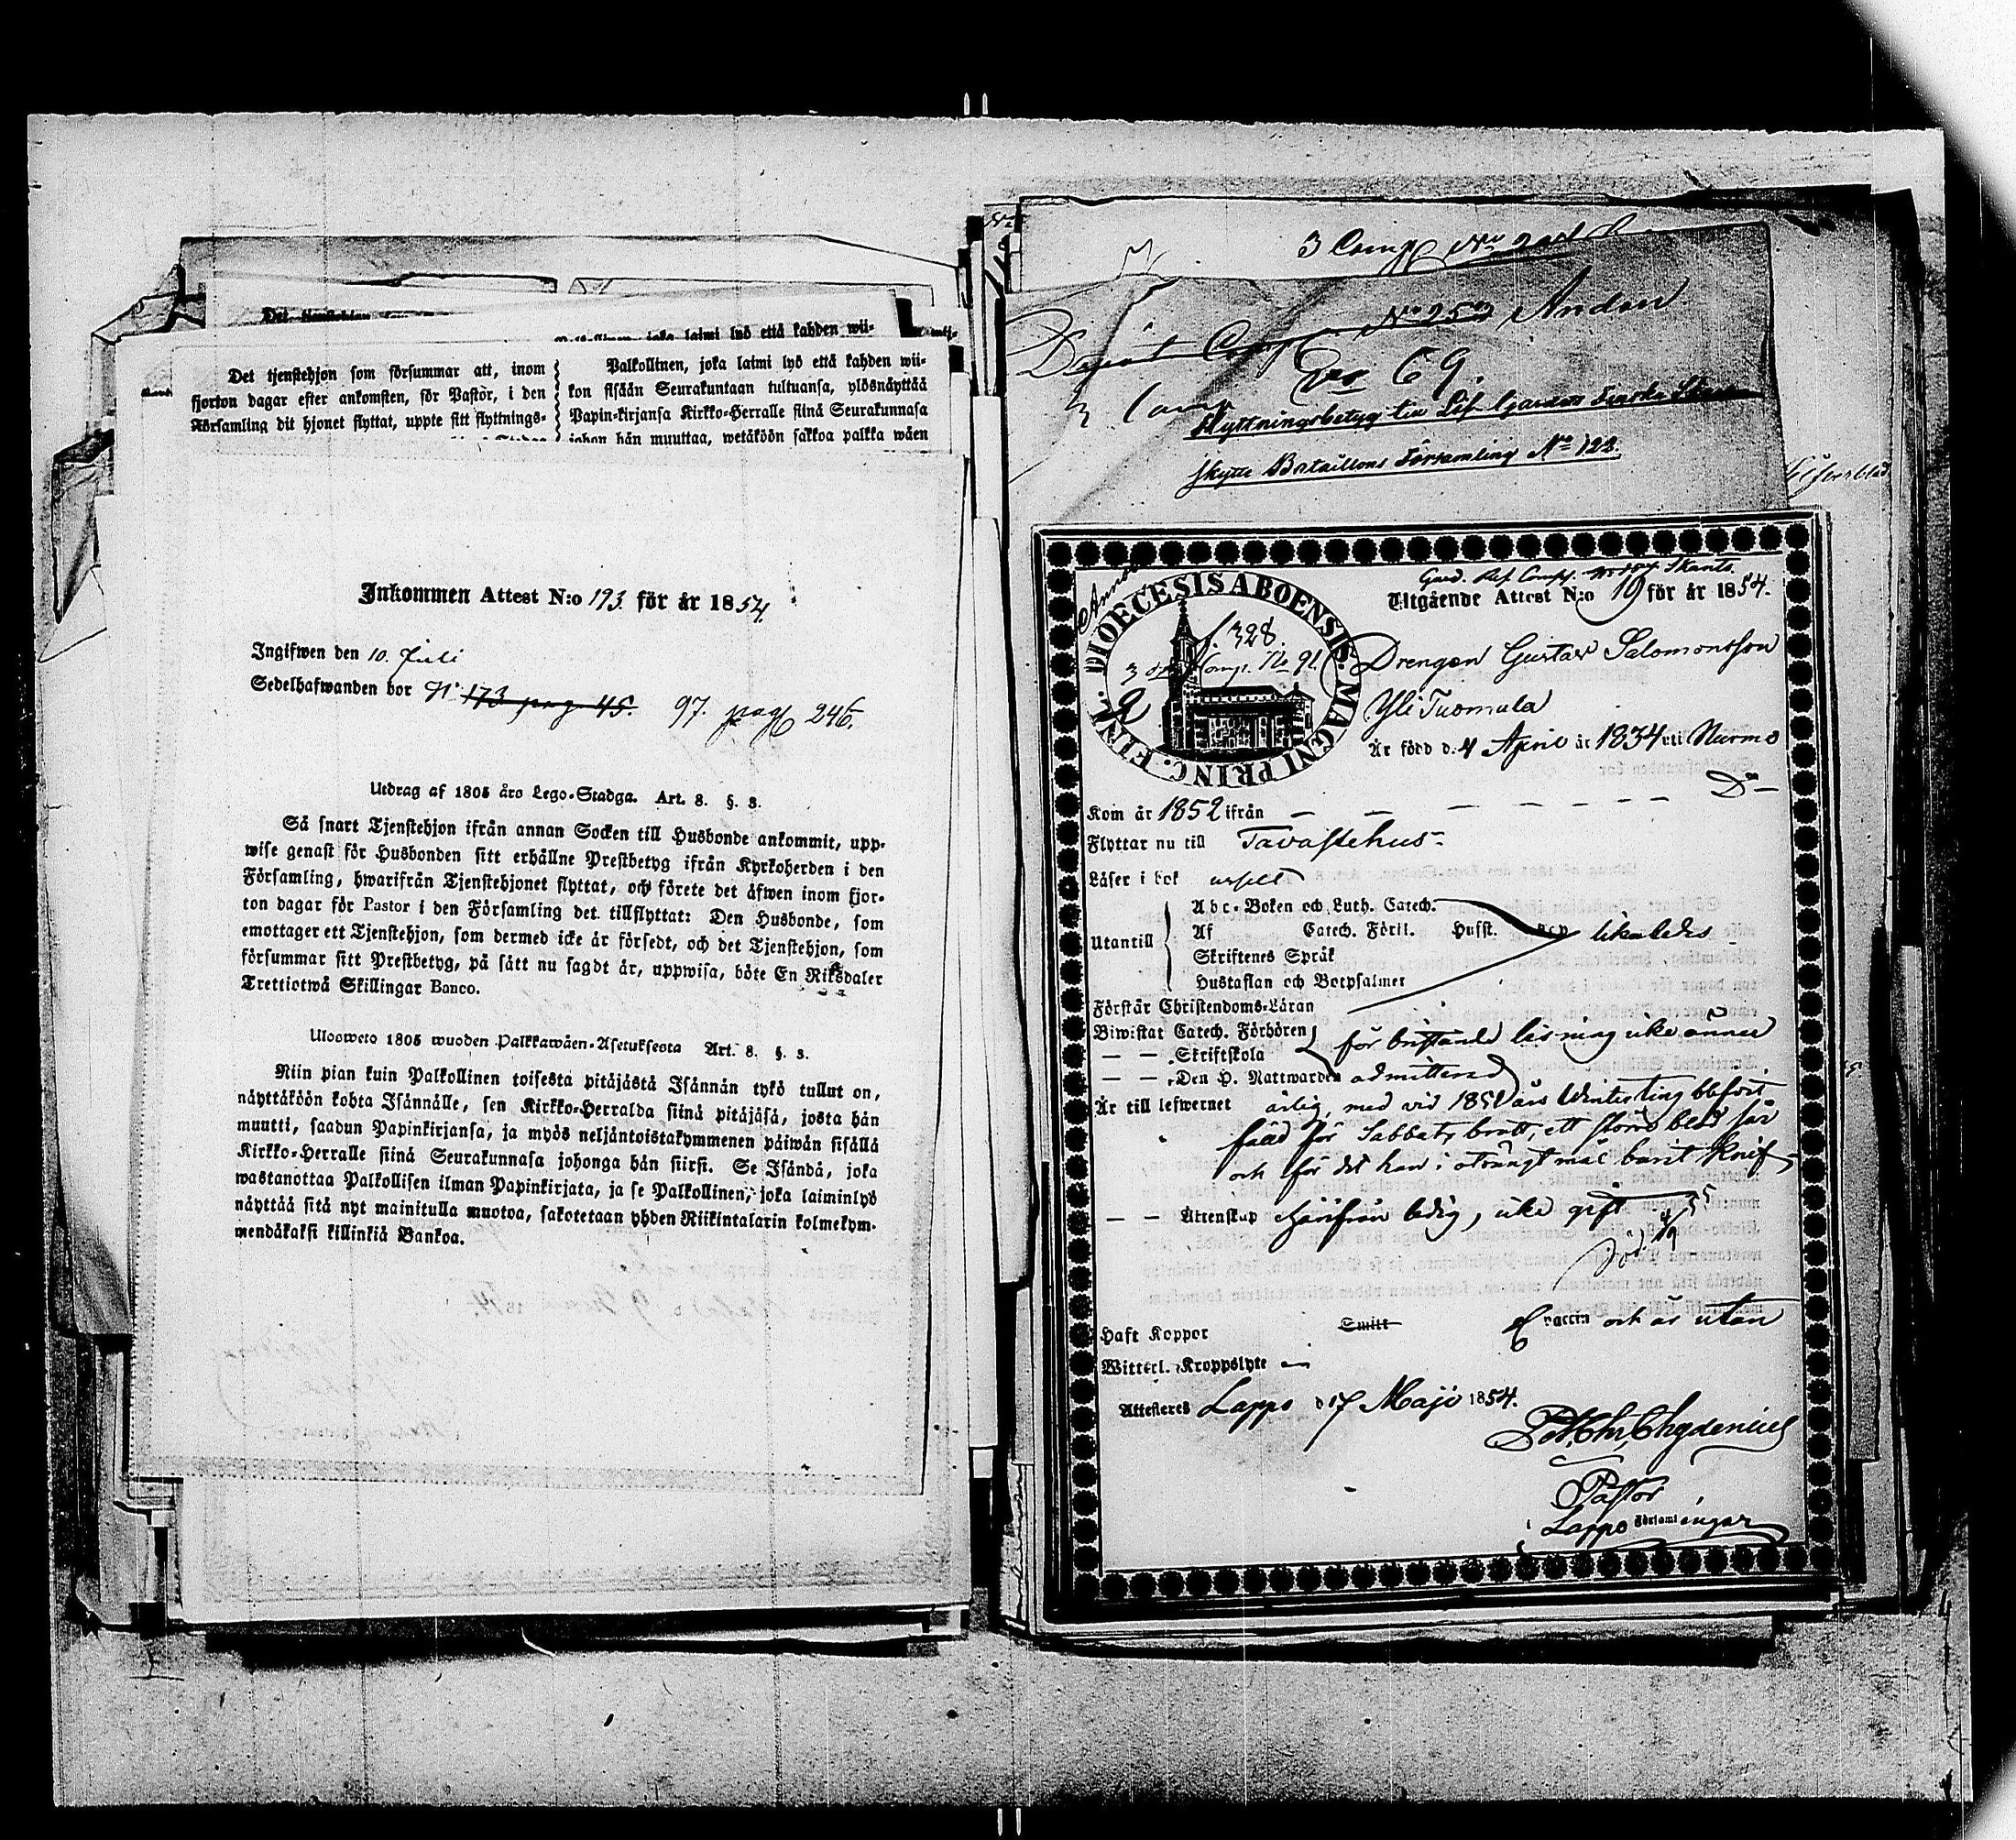 Det tjenstehjon som försummar att, inom
fjorton dagar efter ankomsten, för Pastor, i den
Församling dit hjonet flyttat, uppte sitt flyttnings-
Palkollinen, joka laimi lyö että kahden wii-
kon sisään Seurakuntaan tultuansa, ylösnäyttää
Papin-kirjansa Kirkko-Herralle siinä Seurakunnasa
johon hän muuttaa, wetäköön sakkoa palkka wäen
Inkommen Attest N:o 193. för år 1854.
Ingifwen den 10. Juli
Sedelhafwanden bor N: 173 pag 45. 97. pag 246.
Utdrag af 1805 års Lego-Stadga. Art. 8. §. 3.
Så snart Tjenstehjon ifrån annan Socken till Husbonde ankommit, upp-
wise genast för Husbonden sitt erhållne Prestbetyg ifrån Kyrkoherden i den
Församling, hwarifrån Tjenstehjonet flyttat, och förete det äfwen inom fjor-
ton dagar för Pastor i den Församling det tillflyttat: Den Husbonde, som
emottager ett Tjenstehjon, som dermed icke är försedt, och det Tjenstehjon, som
försummar sitt Prestbetyg, på sätt nu sagdt är, uppwisa, böte En Riksdaler
Trettiotwå Skillingar Banco.
Ulosweto 1805 wuoden Palkkawäen-Asetuksesta Art. 8. §. 3.
Niin pian kuin Palkollinen toisesta pitäjästä Isännän tykö tullut on,
näyttäköön kohta Isännälle, sen Kirkko-Herralda siinä pitäjäsä, josta hän
muutti, saadun Papinkirjansa, ja myös neljäntoistakymmenen päiwän sisällä
Kirkko-Herralle siinä Seurakunnasa johonga hän siirsi. Se Isändä, joka
wastanottaa Palkollisen ilman Papinkirjata, ja se Palkollinen, joka laiminlyö
näyttää sitä nyt mainitulla muotoa, sakotetaan yhden Riikintalarin kolmekym-
mendäkaksi killinkiä Bankoa.
3 Comp
No 25
69.
Flyttningsbetyg till Lif Gardets Finska Skarp
skytte Bataillons Församling No 122.
DIOECESIS ABOENSIS. MAGNI PRINC. FINL.
f. 328.
3 Comp. No 91.
Utgående Attest N:o 19 för år 1854.
Drengen Gustaf Salomonsson
Yli Tuomula
Är född d. 4 April år 1834 uti Nurmo
Kom år 1852 ifrån — — — — — — — Do —
Flyttar nu till Tavastehus
Läser i bok uselt
Utantill
Abc-Boken och Luth. Catech.
Af Catech. Förkl. Husst. och likaledes
Skriftenes Språk
Hustaflan och Botpsalmer
Förstår Christendoms-Läran
Biwistat Catech. Förhören
— — Skriftskola för bristande läsning icke ännu
— — Den H. Nattwarden admitterad
Är till lefwernet ärlig, men vid 1851 års Winterting blefwit
fälld för Sabbats brott, ett större blod sår
och för det han i oträngt mål burit Knif.
— — Äktenskap härifrån ledig, icke gift
Död
Haft Koppor Smitt vaccin och är utan
Witterl. Kroppslyte —
Attesteras Lappo d 17 Maji 1854.
Chydenius
Pastor
Lappo Församlingar